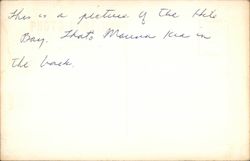 This is a picture of the Hilo
Bay. That's Mauna Kea in
the back.